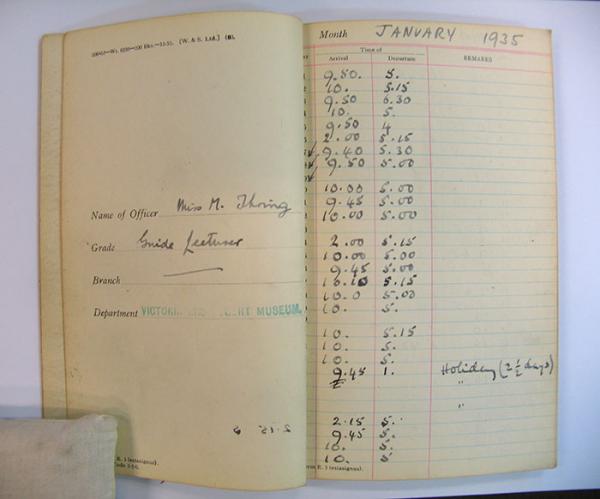 Name of Officer Miss M. Thring
Grade Guide Lecturer
Branch
Department VICTORIA AND ALBERT MUSEUM.
Month JANUARY 1935
Time of
Arrival Departure REMARKS
9.50. 5.
10. 5.15
9.50 6.30
10. 5.
9.50 4
2.00 5.15
9.40 5.30
9.50 5.00
10.00 5.00
9.45 5.00
10.00 5.00
2.00 5.15
10.00 5.00
9.45 5.00
10.10 5.15
10.0 5.00
10. 5.
10. 5.15
10. 5.
10. 5.
9.45 1. Holiday (2½ days)
"
"
2.15 5.
9.45 5.
10. 5.
10. 5